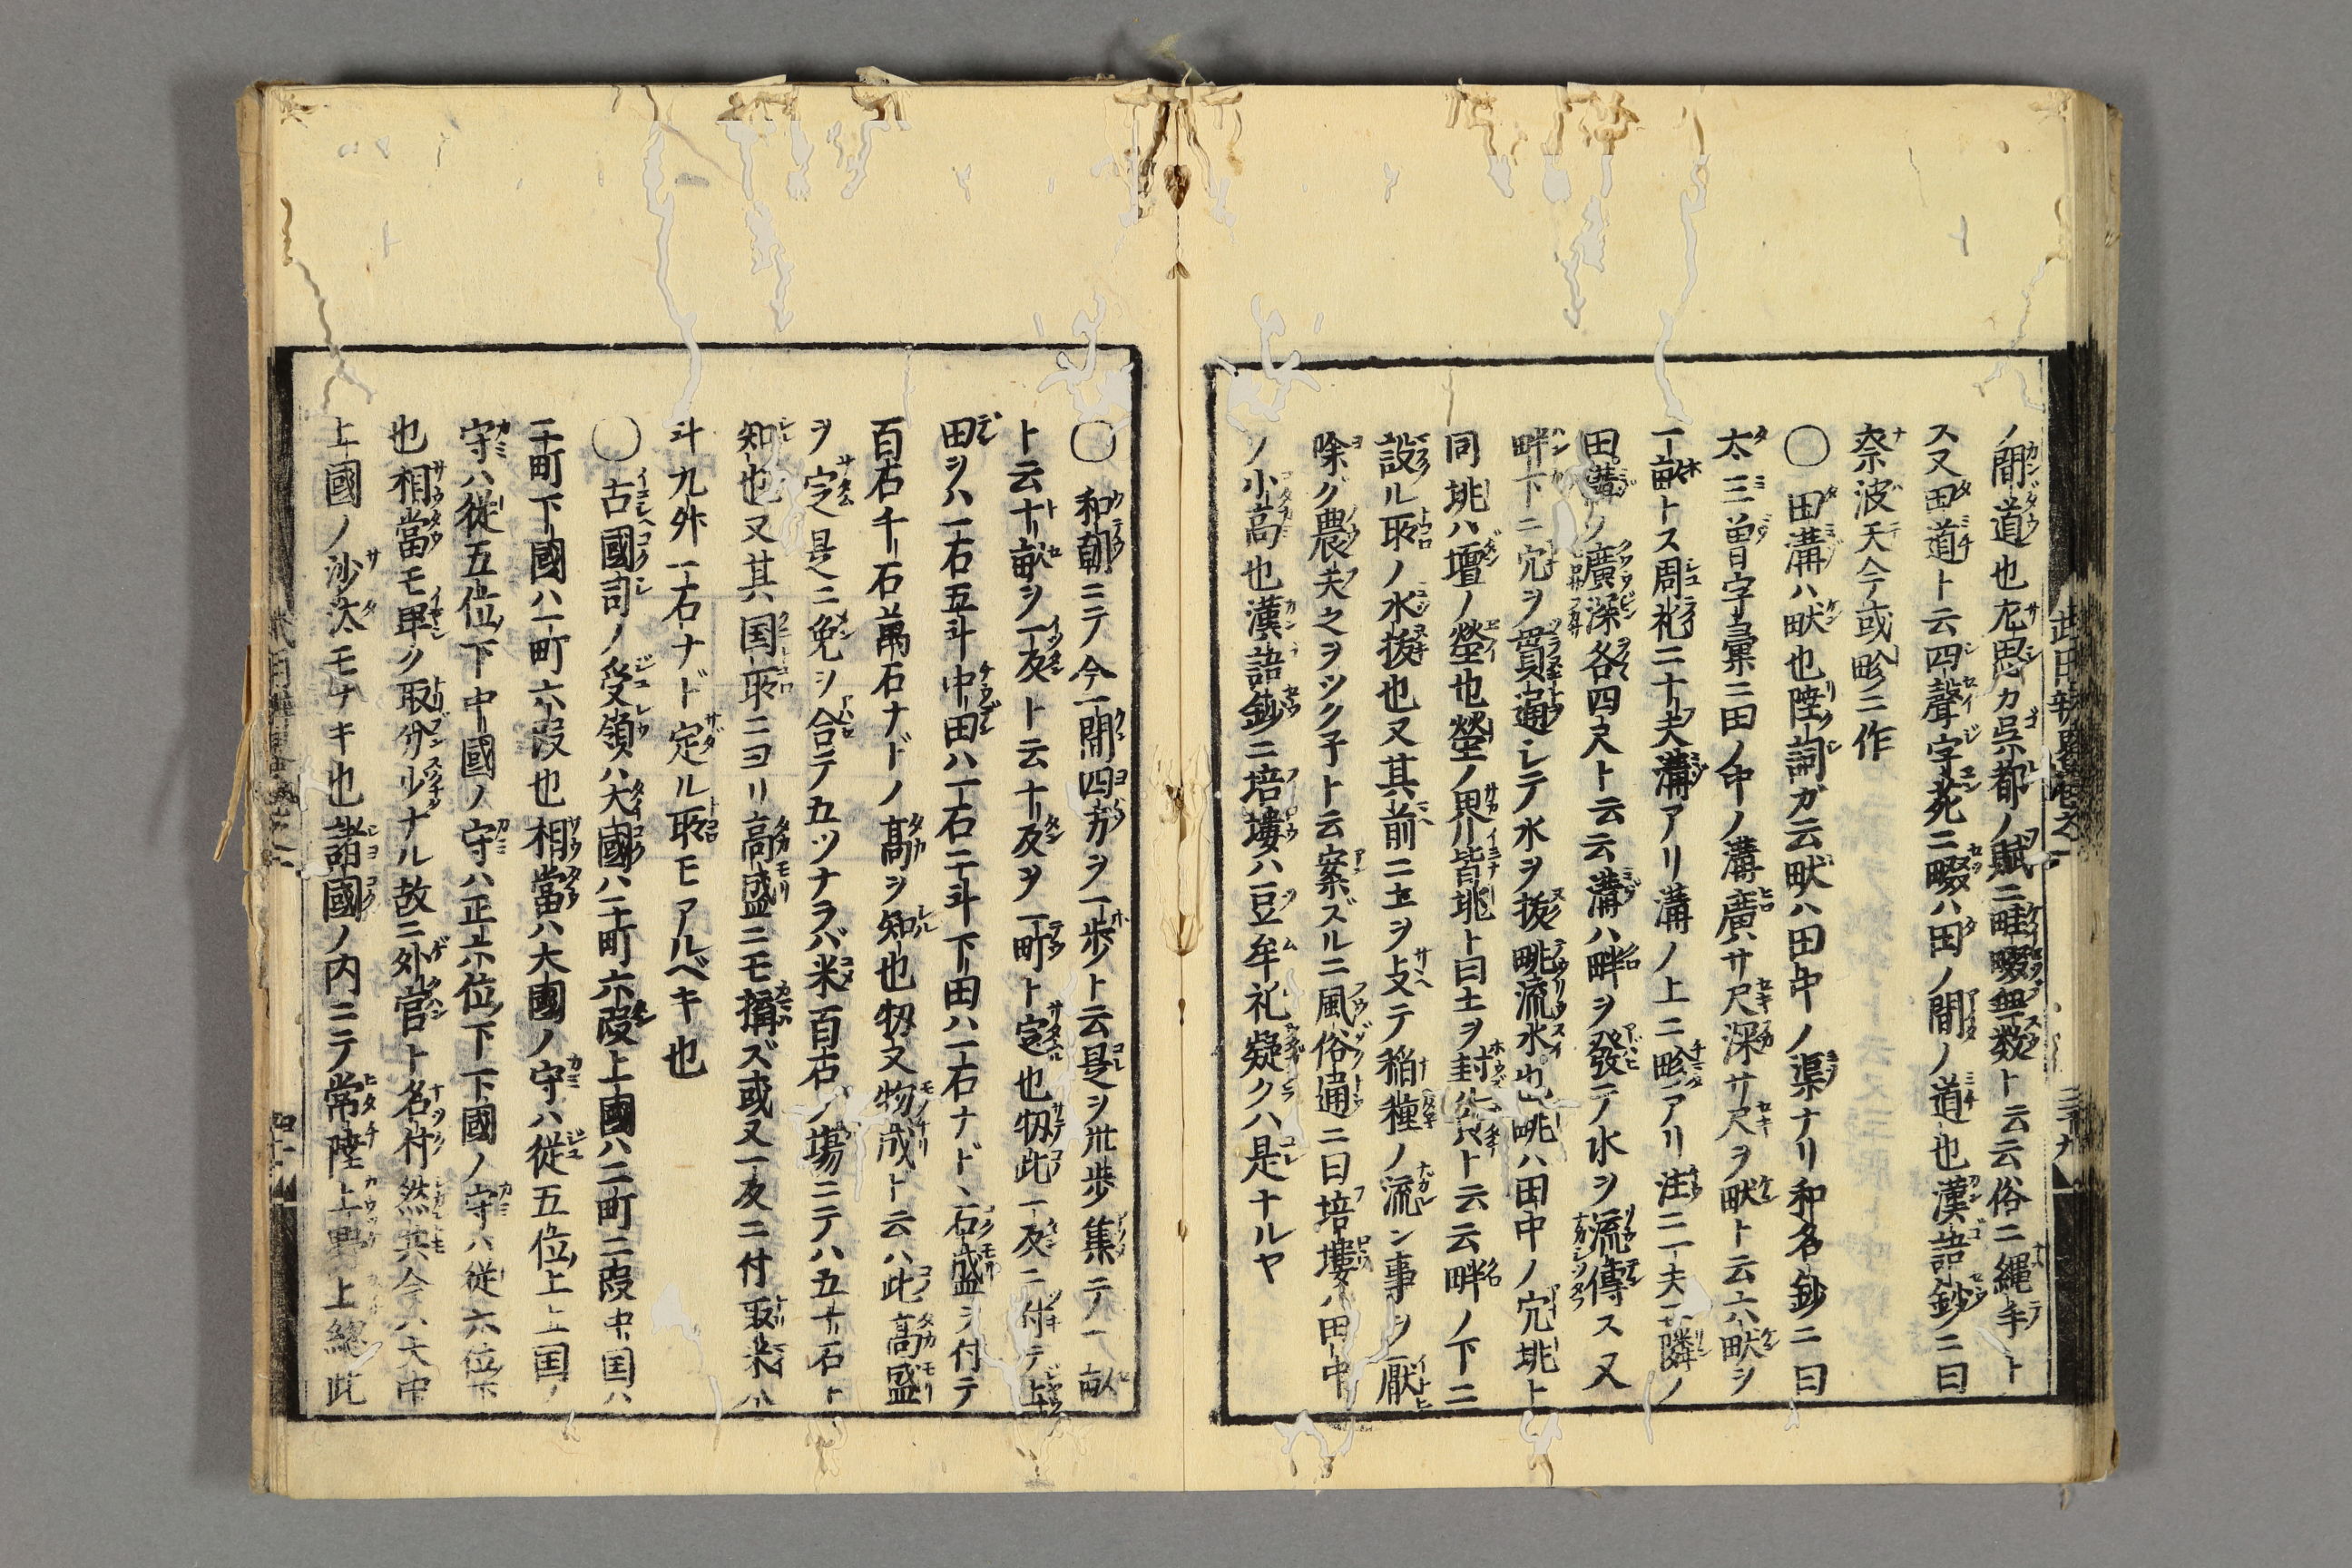 ノ間道也左思カ呉都ノ賦ニ畦畷無数ト云云俗ニ縄手ト
ス又田道ト云四聲字苑ニ畷ハ田ノ間ノ道也漢語鈔ニ曰
奈波天今或畛ニ作
〇田溝ハ畎也陸詞ガ云畎ハ田中ノ渠ナリ和名鈔ニ曰
太三曽字彙ニ田ノ中ノ溝廣サ尺深サ尺ヲ畎ト云六畎ヲ
一畝トス周礼ニ十夫溝アリ溝ノ上ニ畛アリ注ニ一夫二隣ノ
田溝ノ廣深各四尺ト云云溝ハ畔ヲ發テ水ヲ流傳ス又
畔下ニ穴ヲ貫通シテ水ヲ抜畩流水也 ハ田中ノ穴 ト
同 ハ壇ノ塋也塋ノ界皆 ト曰土ヲ封 ト云云畔ノ下ニ
設ル所ノ水抜也又其前ニ土ヲ支テ稲種ノ流ン事ヲ厭
除グ農夫之ヲツク子ト云案ズルニ風俗通ニ曰培塿ハ田中
ノ小高也漢語鈔ニ培塿ハ豆牟礼疑クハ是ナルヤ
〇和朝ニテ今一間四方ヲ一歩ト云是ヲ卅歩集テ一畝
ト云十畝ヲ一反ト云十反ヲ一町ト定也扨此一反ニ付テ上
田ヲハ一石五斗中田ハ一石二斗下田ハ一石ナドヽ石盛ヲ付テ
百石千石萬石ナドノ高ヲ知也扨又物成ト云ハ此高盛
ヲ定是ニ免ヲ合テ五ツナラバ米百石ノ場ニテハ五十石ト
知也又其国所ニヨリ高盛ニモ搆ズ或又一反ニ付取米八
斗九外一石ナド定ル所モアルベキ也
〇古國司ノ受領ハ大國ハ二町六段上國ハ二町二段中国ハ
二町下國ハ一町六段也相當ハ大國ノ守ハ従五位上上国ノ
守ハ従五位下中國ノ守ハ正六位下下國ノ守ハ従六位下
也相當モ卑ク取分少ナル故ニ外官ト名付然共今ハ大中
上國ノ沙汰モナキ也諸國ノ内ニテ常陸上野上總此